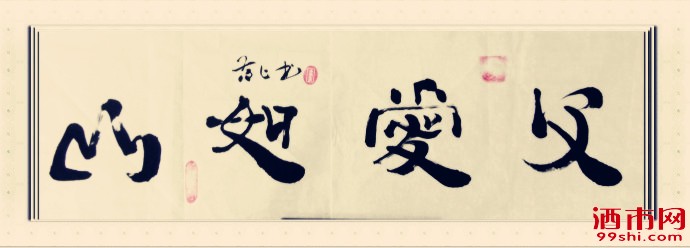 父愛如山
酒市网
99shi.com